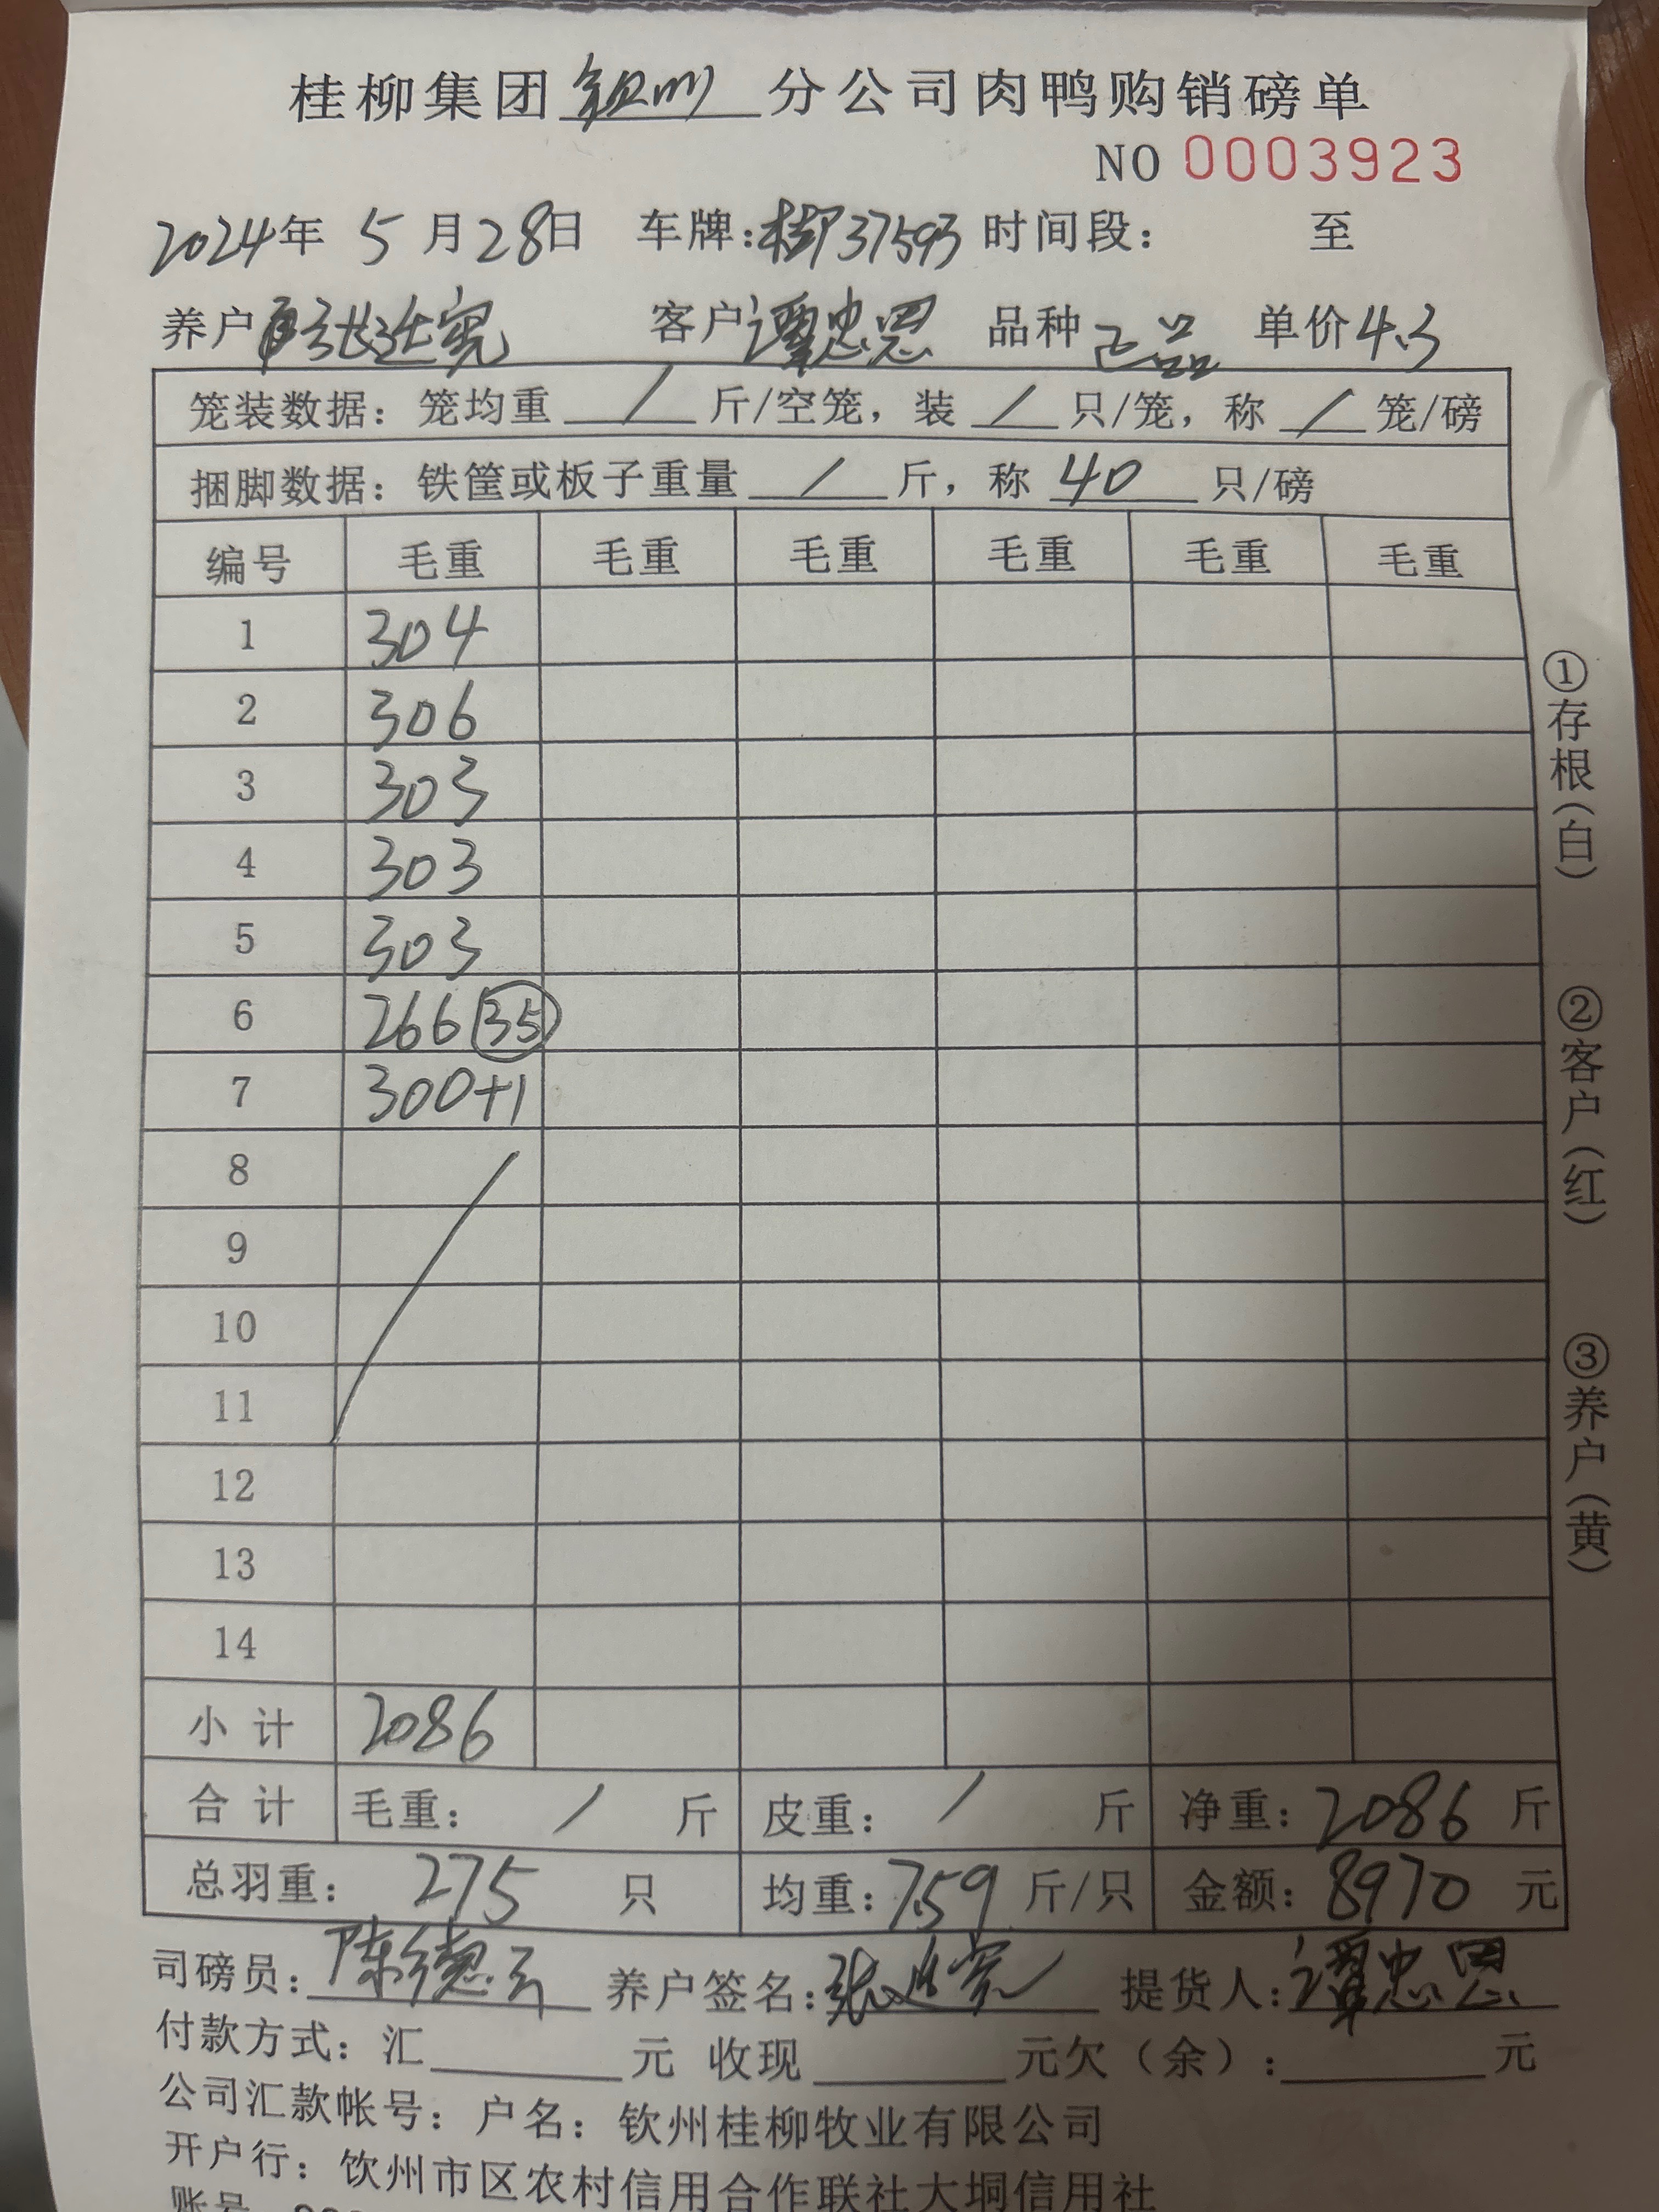 桂柳集团钦州分公司肉鸭购销磅单
NO 0003923
2024年 5月28日 车牌:桂P37593 时间段: 至
养户 张廷宪 客户 谭忠恩 品种 正品 单价4.3
笼装数据: 笼均重 / 斤/空笼, 装 / 只/笼, 称 / 笼/磅
捆脚数据: 铁筐或板子重量 / 斤, 称 40 只/磅
编号 毛重 毛重 毛重 毛重 毛重 毛重
1 304
2 306
3 303
4 303
5 303
6 266 (35)
7 300+1
8
9
10
11
12
13
14
小计 2086
合计 毛重: / 斤 皮重: / 斤 净重: 2086 斤
总羽重: 275 只 均重: 7.59 斤/只 金额: 8970 元
司磅员: 陈德云 养户签名: 张廷宪 提货人: 谭忠恩
付款方式: 汇 元 收现 元欠(余): 元
公司汇款帐号: 户名: 钦州桂柳牧业有限公司
开户行: 钦州市区农村信用合作联社大垌信用社
账号
①存根(白)
②客户(红)
③养户(黄)